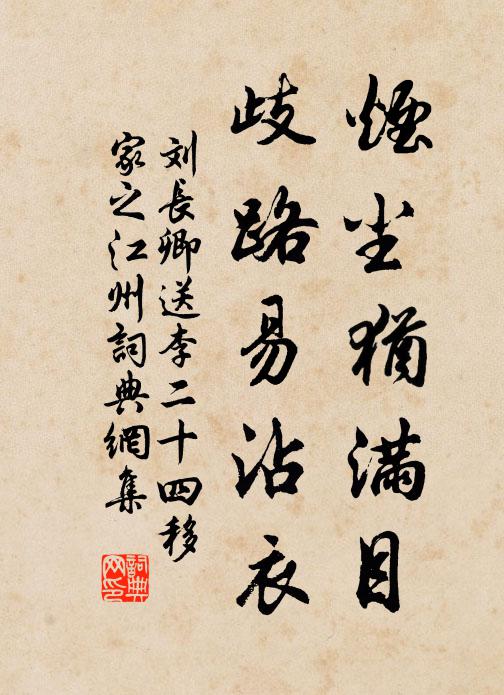 煙尘猶滿目
歧路易沾衣
刘長卿送李二十四移
家之江州詞典網集
詞典
网印